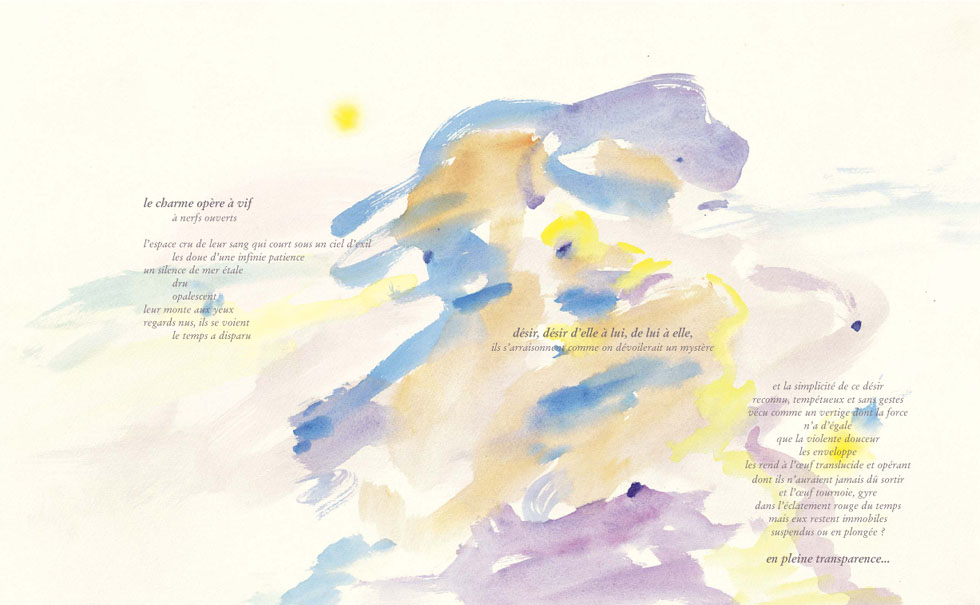 le charme opère à vif
à nerfs ouverts
l'espace cru de leur sang qui court sous un ciel d'exil
les doue d'une infinie patience
un silence de mer étale
dru
opalescent
leur monte aux yeux
regards nus, ils se voient
le temps a disparu
désir, désir d'elle à lui, de lui à elle,
ils s'arraisonnent comme on dévoilerait un mystère
et la simplicité de ce désir
reconnu, tempétueux et sans gestes
vécu comme un vertige dont la force
n'a d'égale
que la violente douceur
les enveloppe
les rend à l'œuf translucide et opérant
dont ils n'auraient jamais dû sortir
et l'œuf tournoie, gyre
dans l'éclatement rouge du temps
mais eux restent immobiles
suspendus ou en plongée ?
en pleine transparence...